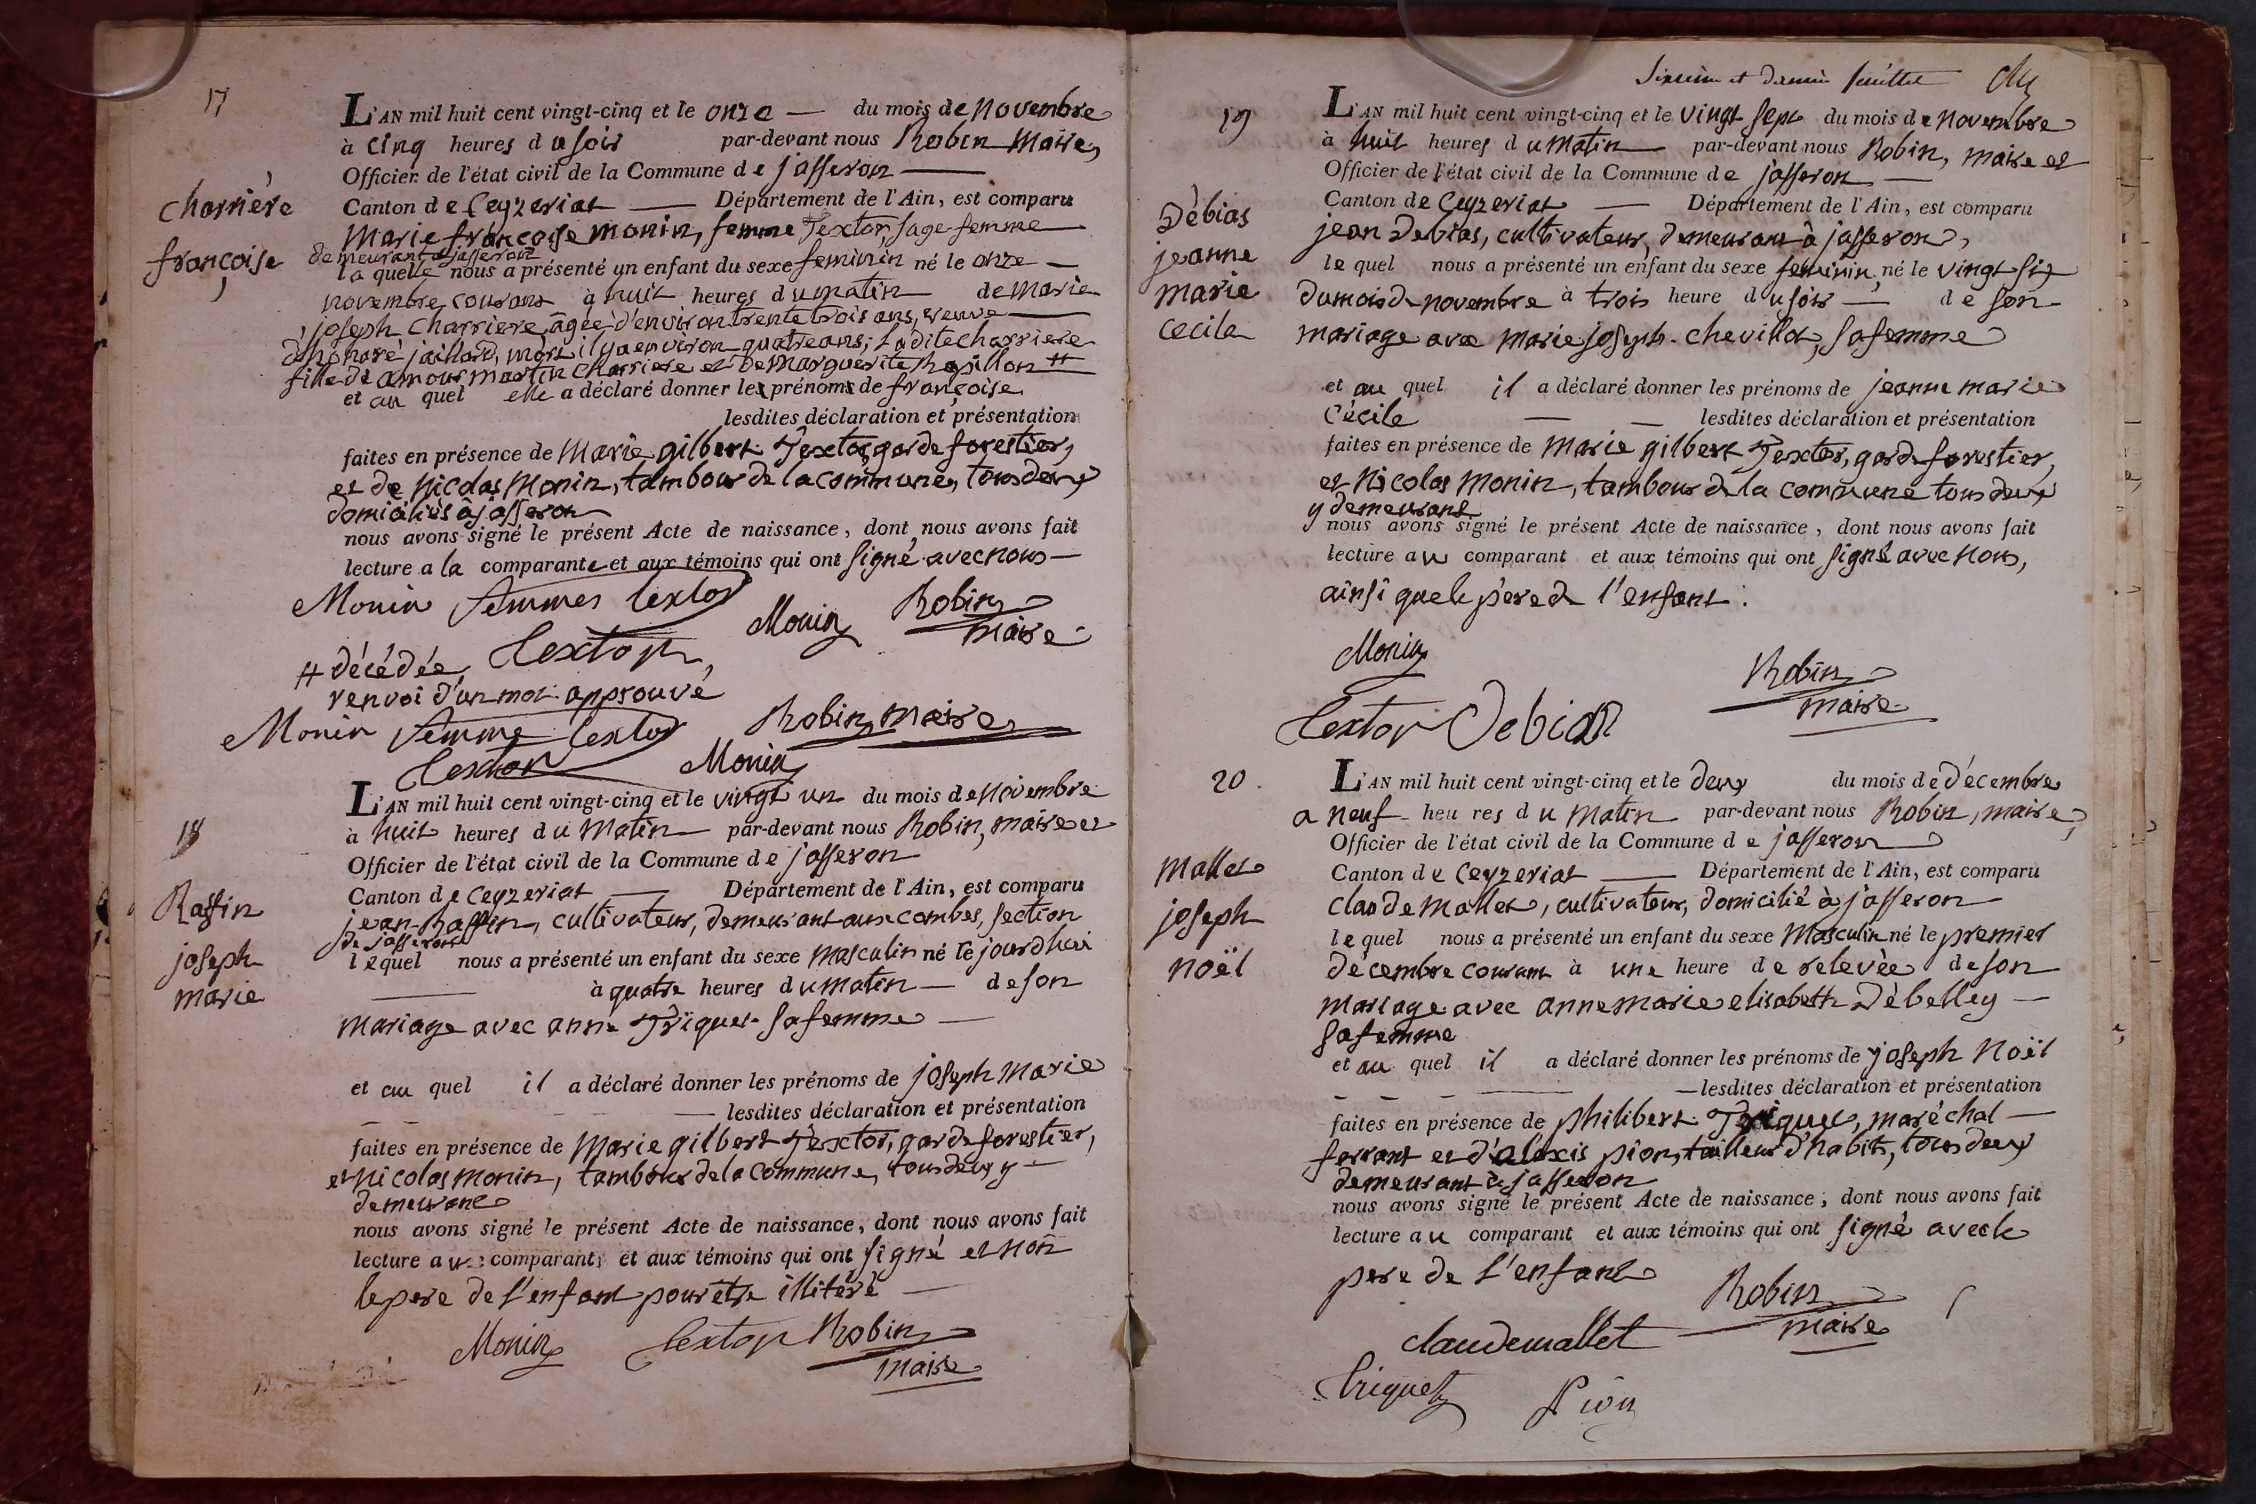 17
L'AN mil huit cent vingt-cinq et le onze — du mois de novembre
à cinq heures du soir par-devant nous Robin Maire,
Officier de l'état civil de la Commune de jasseron —
Canton de Ceyzeriat — Département de l'Ain, est comparu
Marie françoise monin, femme Textor, sage femme
demeurant à jasseron
la quelle nous a présenté un enfant du sexe feminin né le onze —
novembre courant à huit heures du matin de marie
joseph Charriere, âgée d'environ trente trois ans, veuve —
d'honoré jaillard, mort il y a environ quatre ans; Ladite charriere
fille de amour martin Charriere et de Marguerite Ropillon #
et au quel elle a déclaré donner les prénoms de françoise
lesdites déclaration et présentation
faites en présence de Marie gilbert Textor, garde forestier,
et de Nicolas Monin, tambour de la commune, tous deux
domiciliés à jasseron
nous avons signé le présent Acte de naissance, dont nous avons fait
lecture a la comparante et aux témoins qui ont signé avec nous —
Charrière
françoise
Monin femme textor Monin Robin
maire
Textor
# décédée,
renvoi d'un mot approuvé
Monin femme textor Robin, maire
Textor Monin
18
L'AN mil huit cent vingt-cinq et le vingt un du mois de Novembre
à huit heures du Matin — par-devant nous Robin, maire et
Officier de l'état civil de la Commune de jasseron
Canton de Ceyzeriat — Département de l'Ain, est comparu
jean Raffin, cultivateur, demeurant aux combes, section
de jasseron
lequel nous a présenté un enfant du sexe masculin né le jourd'hui
— à quatre heures du matin — de son
mariage avec anne Triquet sa femme —
et au quel il a déclaré donner les prénoms de joseph Marie
— lesdites déclaration et présentation
faites en présence de Marie gilbert Textor, garde forestier,
et Nicolas monin, tambour de la commune, tous deux y —
demeurant
nous avons signé le présent Acte de naissance, dont nous avons fait
lecture au comparant et aux témoins qui ont signé et non
le pere de l'enfant pour être illitéré —
Raffin
joseph
marie
Monin Textor Robin
maire
Sixième et dernier feuillet
19
L'AN mil huit cent vingt-cinq et le vingt sept du mois de novembre
à huit heures du Matin — par-devant nous Robin, maire et
Officier de l'état civil de la Commune de jasseron —
Canton de Ceyzeriat — Département de l'Ain, est comparu
jean Debias, cultivateur, demeurant à jasseron,
le quel nous a présenté un enfant du sexe feminin, né le vingt six
du mois de novembre à trois heure du soir — de son
mariage avec marie joseph chevillot, sa femme
et au quel il a déclaré donner les prénoms de jeanne marie
Cécile — — lesdites déclaration et présentation
faites en présence de Marie gilbert Textor, garde forestier,
et Nicolas Monin, tambour de la commune tous deux
y demeurant
nous avons signé le présent Acte de naissance, dont nous avons fait
lecture au comparant et aux témoins qui ont signé avec nous,
ainsi que le père de l'enfant.
Débias
jeanne
marie
Cecile
Monin Robin
maire
Textor Debias
20.
L'AN mil huit cent vingt-cinq et le deux du mois de décembre
a neuf heures du Matin par-devant nous Robin, maire,
Officier de l'état civil de la Commune de jasseron
Canton de Ceyzeriat — Département de l'Ain, est comparu
claude Mallet, cultivateur, domicilié à jasseron
lequel nous a présenté un enfant du sexe Masculin né le premier
décembre courant à une heure de relevée de son
mariage avec anne marie elisabeth Débelley —
sa femme
et au quel il a déclaré donner les prénoms de joseph Noël
— lesdites déclaration et présentation
faites en présence de philibert Triquet, maréchal —
ferrant et d'alexis pion, tailleur d'habits, tous deux
demeurant à jasseron
nous avons signé le présent Acte de naissance, dont nous avons fait
lecture au comparant et aux témoins qui ont signé avec le
pere de l'enfant
Mallet
joseph
noël
Robin
maire
claude mallet
Triquet Pion